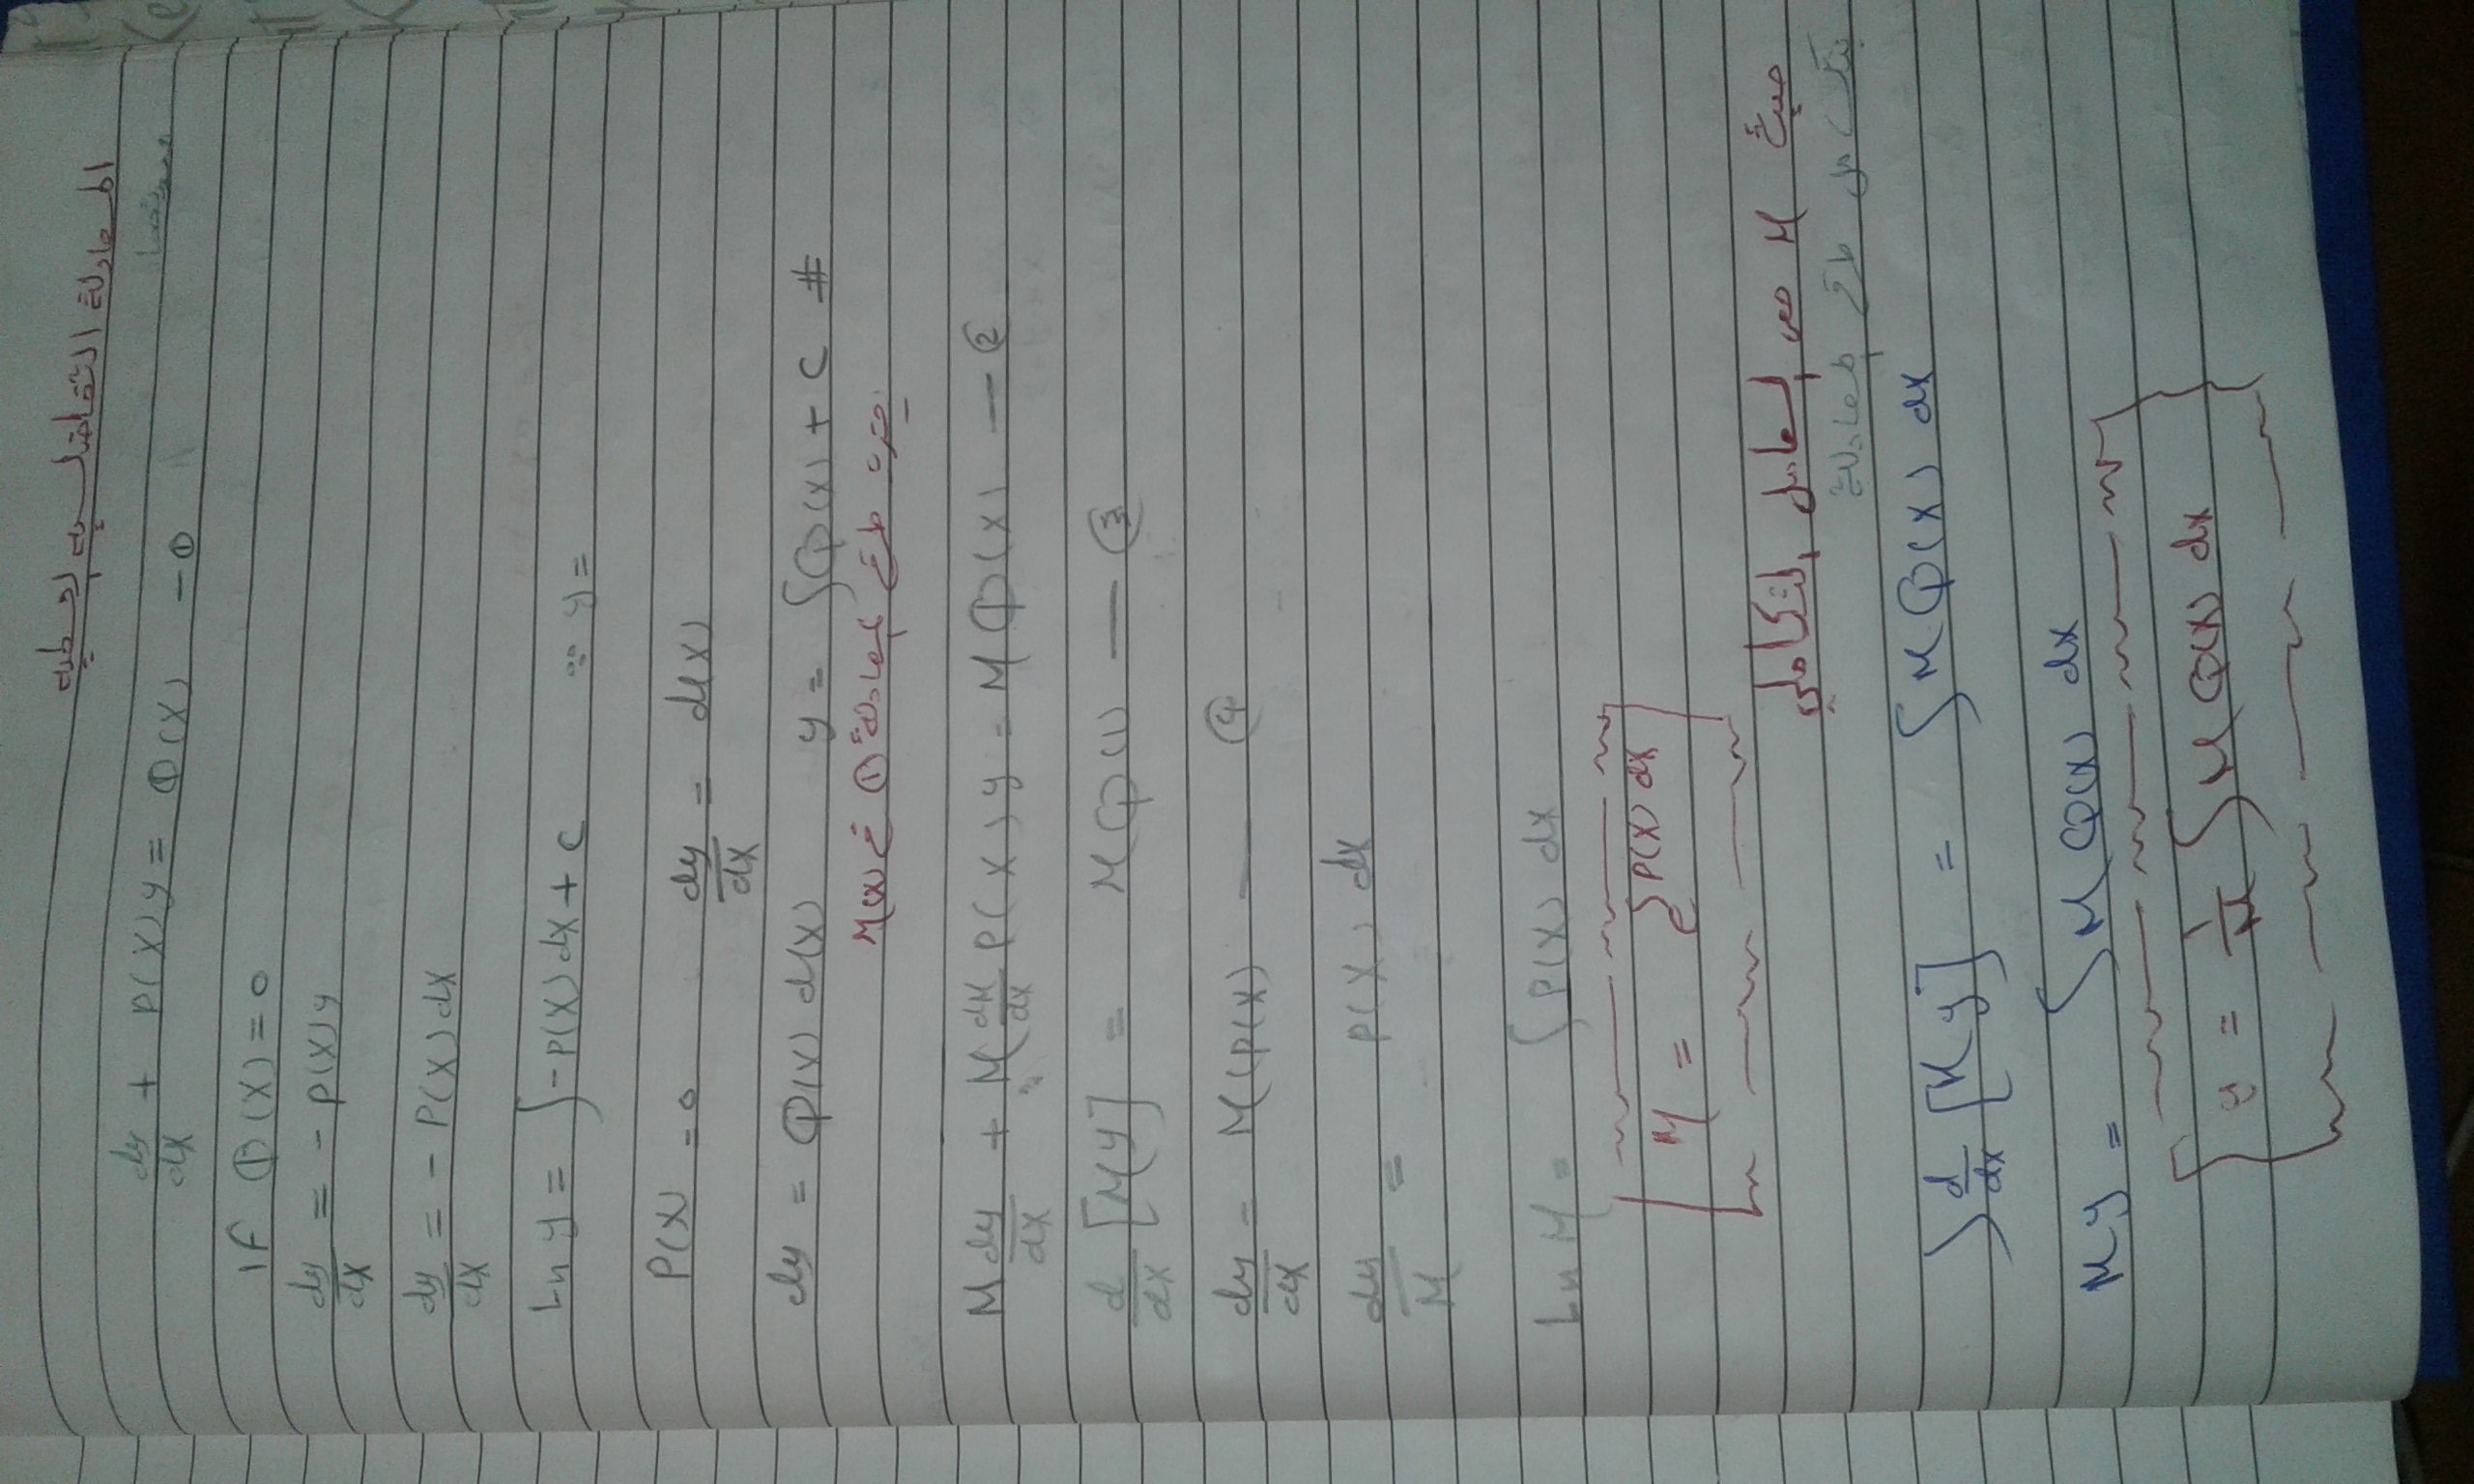 المعادلة التفاضليه الخطيه
dy/dx + P(X) y = Φ(X) — ①
IF Φ(X) = 0
dy/dx = - P(X) y
dy/dx = - P(X) dx
Ln y = ∫ -P(X) dx + C ∵ y =
P(X) = 0 dy/dx = d(x)
dy = Φ(X) d(X) y = ∫Φ(X) + C #
بضرب طرفي المعادلة ① في M(X)
M dy/dx + M dM/dx P(X) y = M Φ(X) — ②
d/dx [My] = M Φ(1) — ③
dy/dx = M(P(X) — ④
dy/M = P(X) dx
Ln M = ∫ P(X) dx
M = e^∫P(X) dx
حيث M هو المعامل التكاملي
بتكامل طرفي المعادلة
∫ d/dx [My] = ∫ M Φ(X) dx
My = ∫ M Φ(X) dx
y = 1/M ∫ M Φ(X) dx